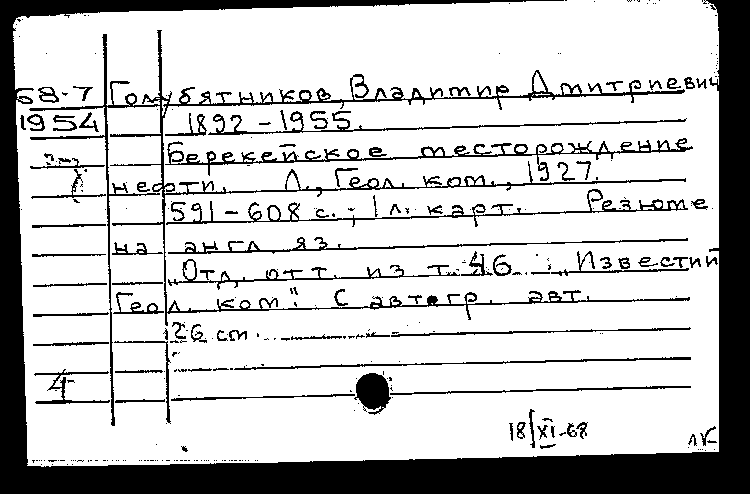 68-7 Голубятников, Владимир Дмитриевич
1954 1892-1955.
Берекейское месторождение
нефти. Л., Геол. ком., 1927.
591-608 с.; 1 л. карт. Резюме
на англ. яз.
„Отд. отт. из т. 46 : „Известий
Геол. ком". С автогр. авт.
26 см.
4
18/XI-68